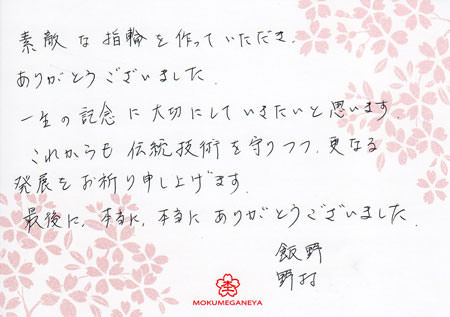 素敵な指輪を作っていただき、
ありがとうございました。
一生の記念に大切にしていきたいと思います。
これからも伝統技術を守りつつ、更なる
発展をお祈り申し上げます。
最後に、本当に、本当にありがとうございました。
飯野
野村
MOKUMEGANEYA